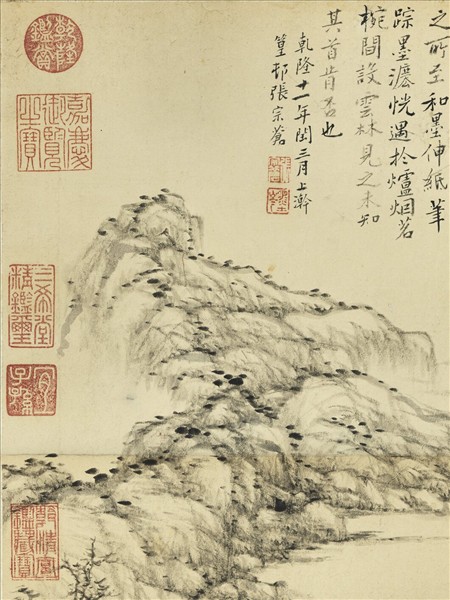 之所至和墨伸紙筆
踪墨瀋恍遇於爐烟茗
椀間設雲林見之未知
其首肯否也
乾隆十一年閏三月上澣
篁邨張宗蒼
乾隆鑑賞
嘉慶御覽之寶
三希堂精鑑璽
宜子孫